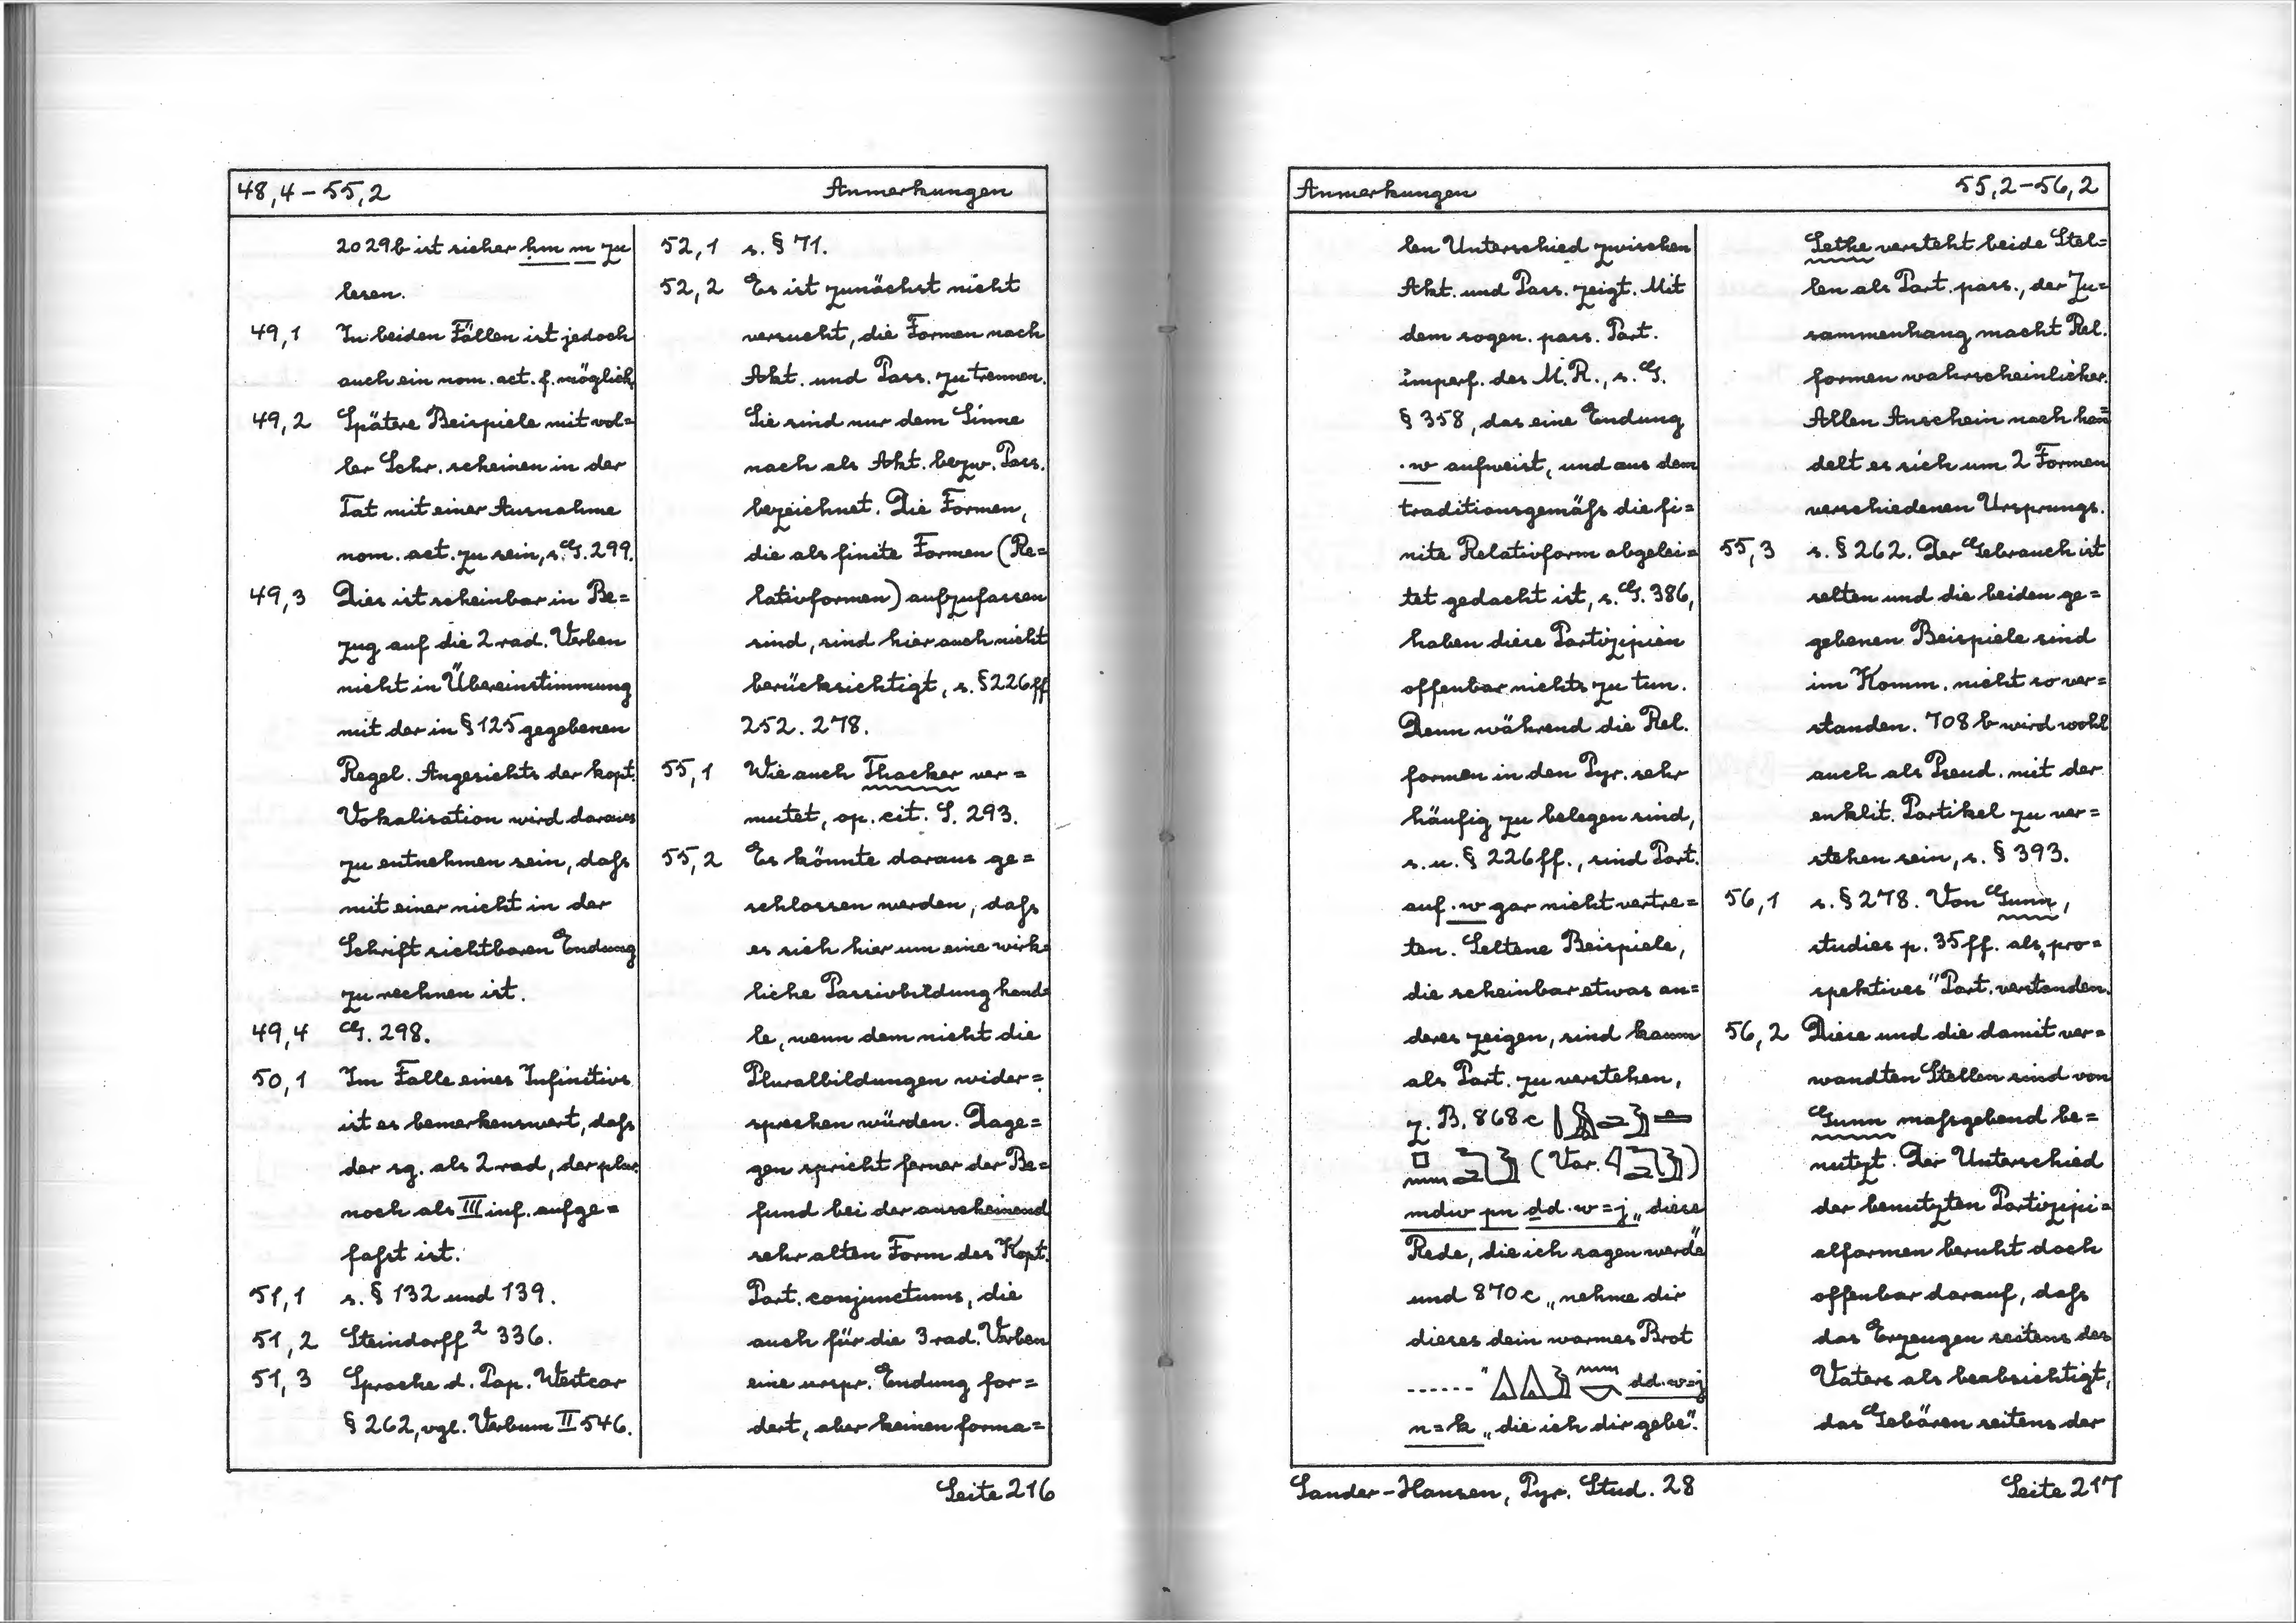 48,4 – 55,2 Anmerkungen
2029b ist sicher ḥm m zu
lesen.
49,1 In beiden Fällen ist jedoch
auch ein nom. act. f. möglich.
49,2 Spätere Beispiele mit vol=
ler Schr. scheinen in der
Tat mit einer Ausnahme
nom. act. zu sein, s. G. 299.
49,3 Dies ist scheinbar in Be=
zug auf die 2 rad. Verben
nicht in Übereinstimmung
mit der in § 125 gegebenen
Regel. Angesichts der kopt.
Vokalisation wird daraus
zu entnehmen sein, dafs
mit einer nicht in der
Schrift sichtbaren Endung
zu rechnen ist.
49,4 G. 298.
50,1 Im Falle eines Infinitivs
ist es bemerkenswert, dafs
der sg. als 2 rad, der plur.
noch als III inf. aufge=
fafst ist.
51,1 s. § 132 und 139.
51,2 Steindorff² 336.
51,3 Sprache d. Pap. Westcar
§ 262, vgl. Verbum II 546.
52,1 s. § 71.
52,2 Es ist zunächst nicht
versucht, die Formen nach
Akt. und Pass. zu trennen.
Sie sind nur dem Sinne
nach als Akt. bezw. Pass.
bezeichnet. Die Formen,
die als finite Formen (Re=
lativformen) aufzufassen
sind, sind hier auch nicht
berücksichtigt, s. § 226 ff
252. 278.
55,1 Wie auch Thacker ver=
mutet, op. cit. S. 293.
55,2 Es könnte daraus ge=
schlossen werden, dafs
es sich hier um eine wirk=
liche Passivbildung hand=
le, wenn dem nicht die
Pluralbildungen wider=
sprechen würden. Dage=
gen spricht ferner der Be=
fund bei der anscheinend
sehr alten Form des Kopt.
Part. conjunctums, die
auch für die 3 rad. Verben
eine urspr. Endung for=
dert, aber keinen forma=
Seite 216
Anmerkungen 55,2–56,2
len Unterschied zwischen
Akt. und Pass. zeigt. Mit
dem sogen. pass. Part.
imperf. des M.R., s. G.
§ 358, das eine Endung
.w aufweist, und aus dem
traditionsgemäfs die fi=
nite Relativform abgelei=
tet gedacht ist, s. G. 386,
haben diese Partizipien
offenbar nichts zu tun.
Denn während die Rel.
formen in den Pyr. sehr
häufig zu belegen sind,
s. u. § 226 ff., sind Part.
auf .w gar nicht vertre=
ten. Seltene Beispiele,
die scheinbar etwas an=
deres zeigen, sind kaum
als Part. zu verstehen,
z. B. 868 c
(Var. )
mdw pn ḏd.w=j „diese
Rede, die ich sagen werde"
und 870 c „nehme dir
dieses dein warmes Brot
......" dd.w=j
n=k „die ich dir gebe".
Sethe versteht beide Stel=
len als Part. pass., der Zu=
sammenhang macht Rel.
formen wahrscheinlicher.
Allen Anschein nach han=
delt es sich um 2 Formen
verschiedenen Ursprungs.
55,3 s. § 262. Der Gebrauch ist
selten und die beiden ge=
gebenen Beispiele sind
im Komm. nicht so ver=
standen. 708 b wird wohl
auch als Pseud. mit der
enklit. Partikel zu ver=
stehen sein, s. § 393.
56,1 s. § 278. Von Gunn,
studies p. 35 ff. als „pro=
spektives" Part. verstanden.
56,2 Diese und die damit ver=
wandten Stellen sind von
Gunn mafsgebend be=
nutzt. Der Unterschied
der benutzten Partizipi=
alformen beruht doch
offenbar darauf, dafs
das Erzeugen seitens des
Vaters als beabsichtigt,
das Gebären seitens der
Sander-Hansen, Pyr. Stud. 28 Seite 217